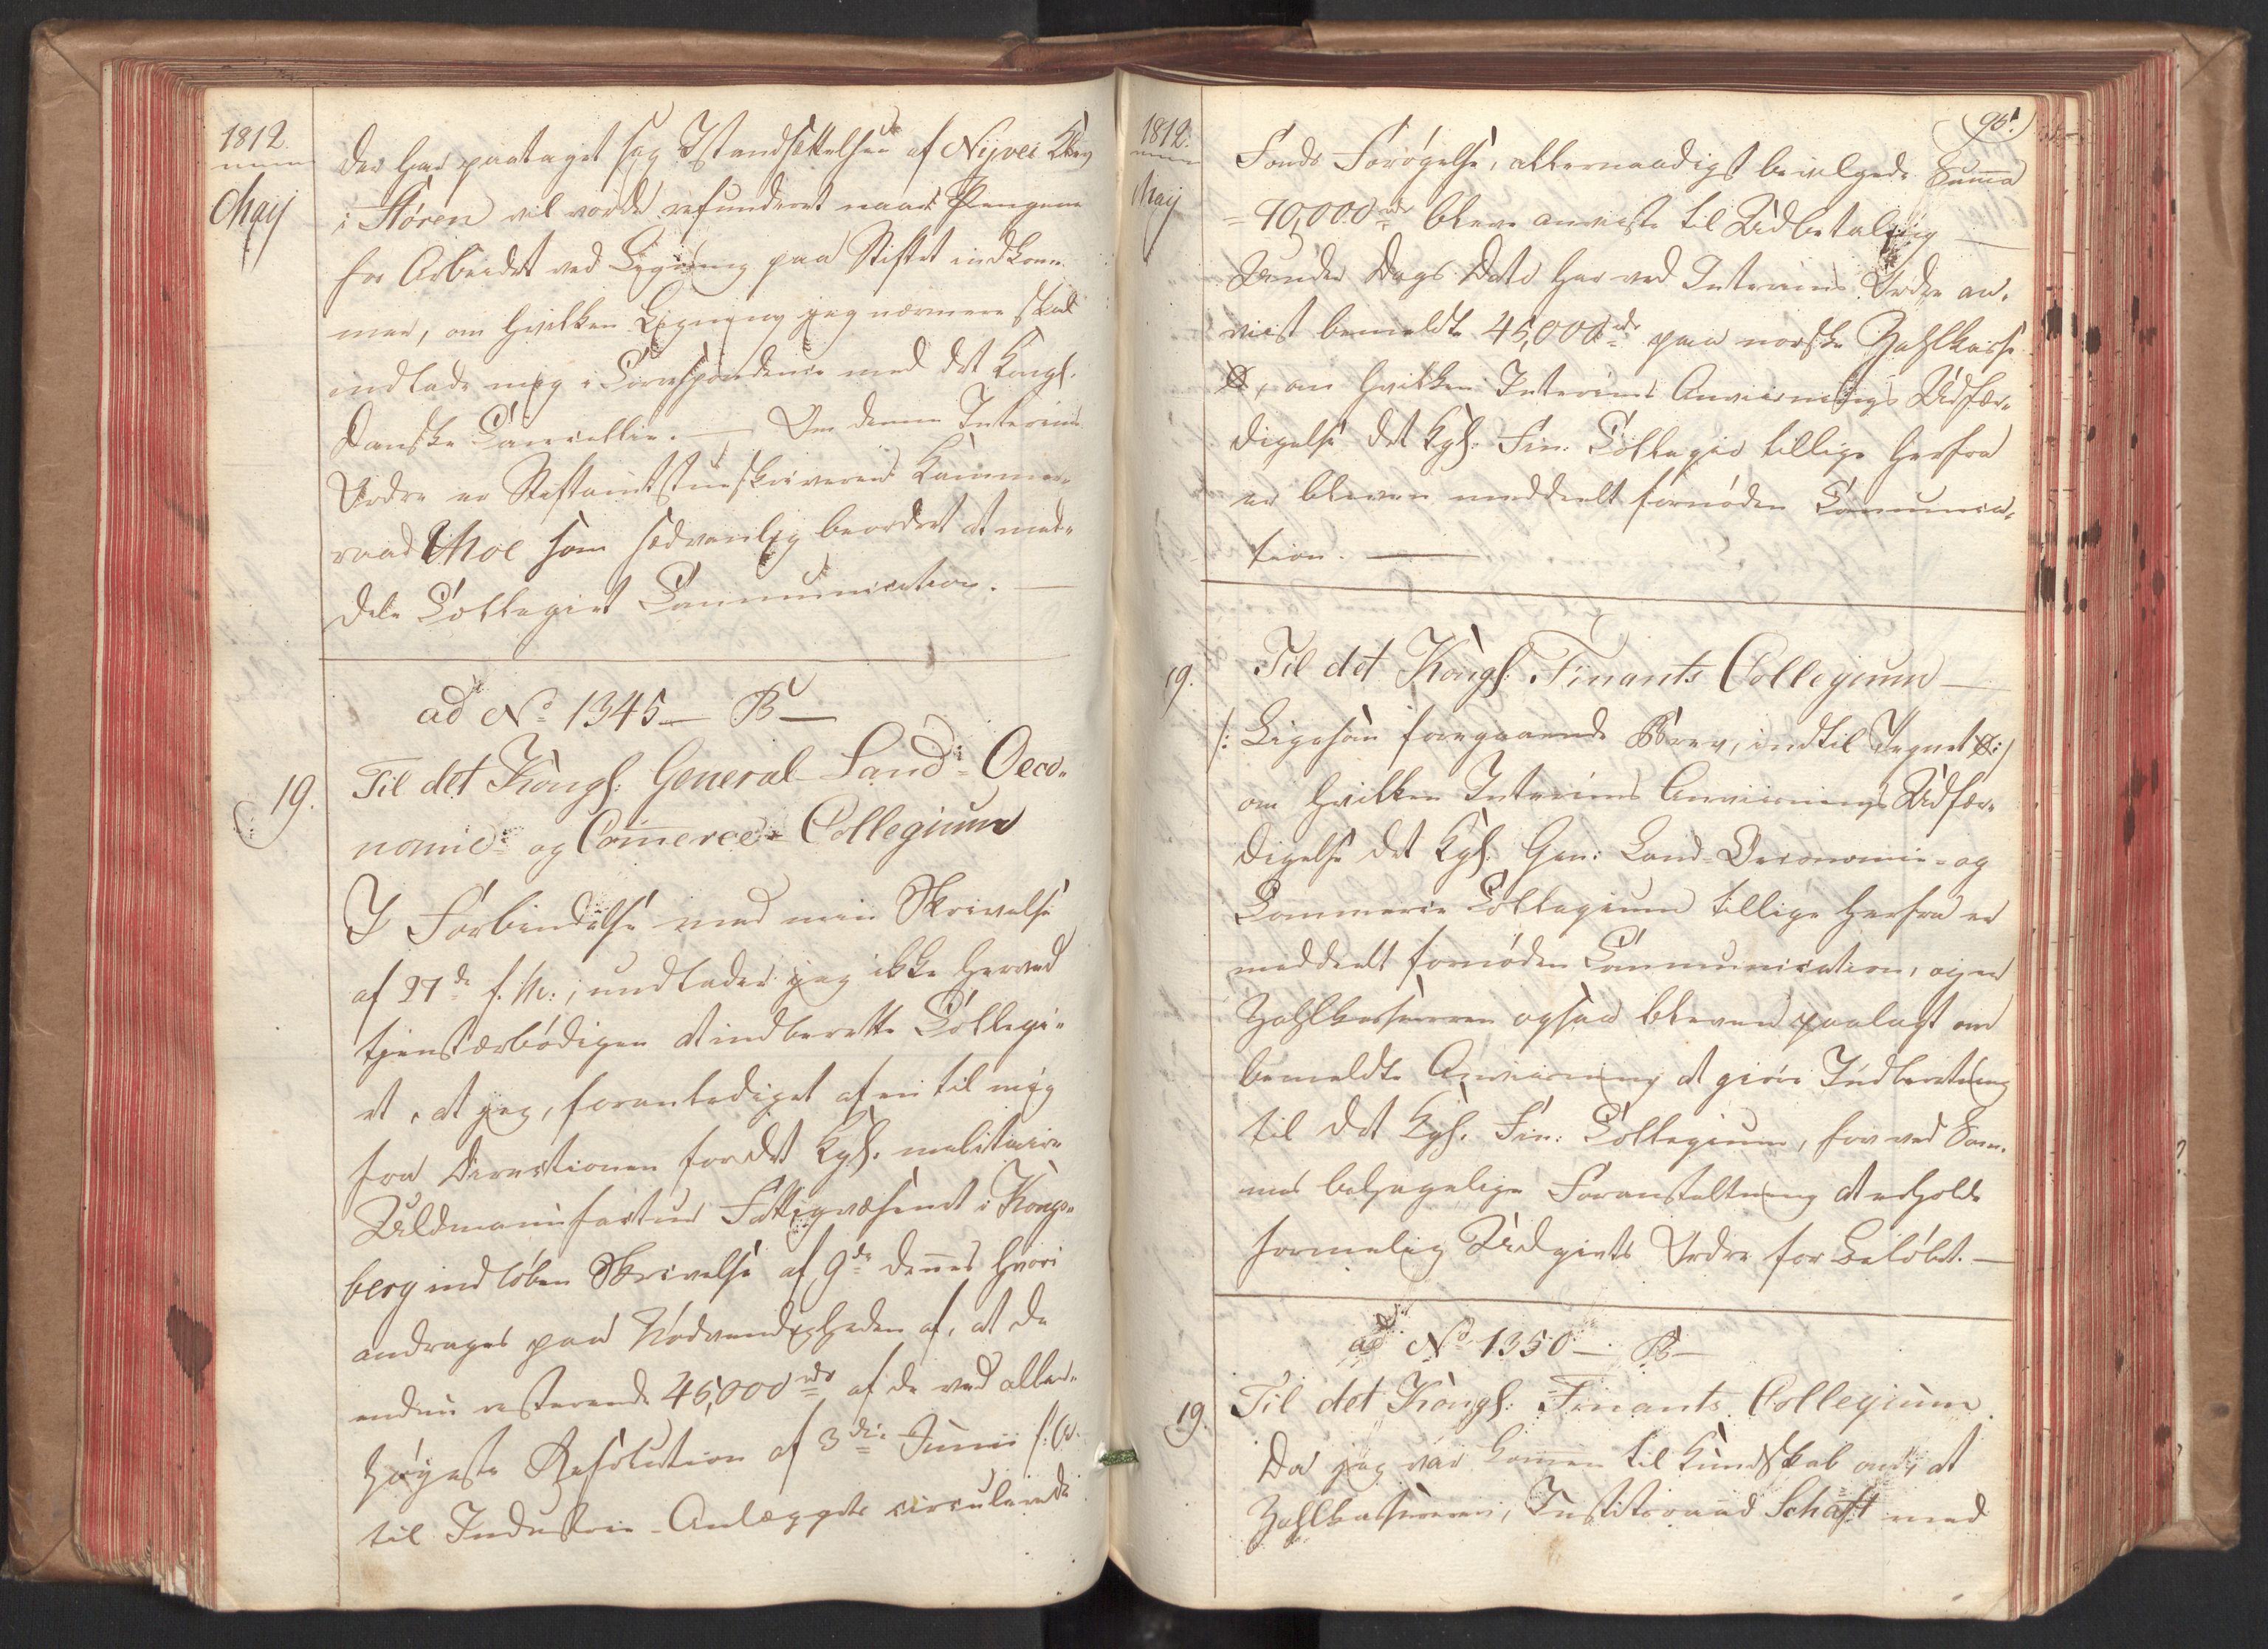 1812.
May
der har paataget sig Istandsættelsen af Nyvei Klev
i Støren vil vorde refunderet naar Pengene
for Arbeidet ved Ligning paa Stiftet indkom-
mer, om hvilken Ligning jeg nærmere skal
indlade mig i Correspondence med det Kongl.
Danske Cancellie. — Om denne Interims
Ordre er Stiftamtstueskriveren Kammer-
raad Moe som sædvanlig beordret at med-
dele Collegiet Communication. —
ad No 1345 — B —
19.
Til det Kongl: General-Land-Oeco-
nomie- og Comerce-Collegium
I Forbindelse med min Skrivelse
af 27de f. M:, undlader jeg ikke herved
tjenstærbødigen at indberette Collegi-
et, at jeg, foranlediget af en til mig
fra Directionen for det Kgl. militaire
Uldmanufactur Fattigvæsenet i Kongs-
berg indløben Skrivelse af 9de dennes hvori
andrages paa Nødvendigheden af, at de
endnu resterende 45,000 rdr af de ved aller-
høyeste Resolution af 3die Junii f: A.
til Industrie-Anlæggets circulerende
1812.
May
95.
Fonds Forøgelse, allernaadigst bevilgede Summa
90,000 rdr bleve anviiste til Udbetaling —
Under Dags Dato har ved Interims Ordre an-
viist bemeldte 45,000 rdr paa norske Zahlkasse
Ø, om hvilken Interims Anviisnings Udfær-
digelse det Kgl: Fin: Collegio tillige herfra
er bleven meddeelt fornøden Communica-
tion. —
19.
Til det Kongl: Finants Collegium —
/: Ligesom foregaaende Brev, indtil Tegnet Ø :/
om hvilken Interims Anviisnings Udfær-
digelse det Kgl: Gen: Land-Oeconomie- og
Commerce Collegium tillige herfra er
meddeelt fornøden Communication, og er
Zahlkassereren ogsaa bleven paalagt om
bemeldte Anviisning at giøre Indberetning
til det Kgl. Fin: Collegium, for ved Sam-
mes behagelige Foranstaltning at erholde
formelig Udgivts Ordre for Beløbet. —
ad No 1350 — B —
19.
Til det Kongl: Finants Collegium.
Da jeg var kommen til Kundskab om, at
Zahlkassereren, Justitsraad Schaft med